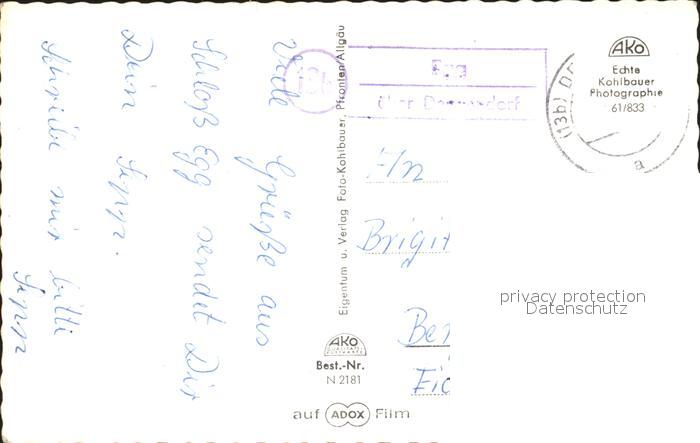 Viele Grüße aus
Schloß Egg sendet Dir
Dein Sepp.
Schreibe mir bitte
Sepp
Eigentum u. Verlag Foto-Kohlbauer, Pfronten/Allgäu
13b
Egg
über Deggendorf
(13b) D
a
AKO
Echte
Kohlbauer
Photographie
61/833
An
Brigit
Ber
Eic
privacy protection
Datenschutz
AKO
QUALITÄTS
POSTKARTE
Best.-Nr.
N 2181
auf ADOX Film